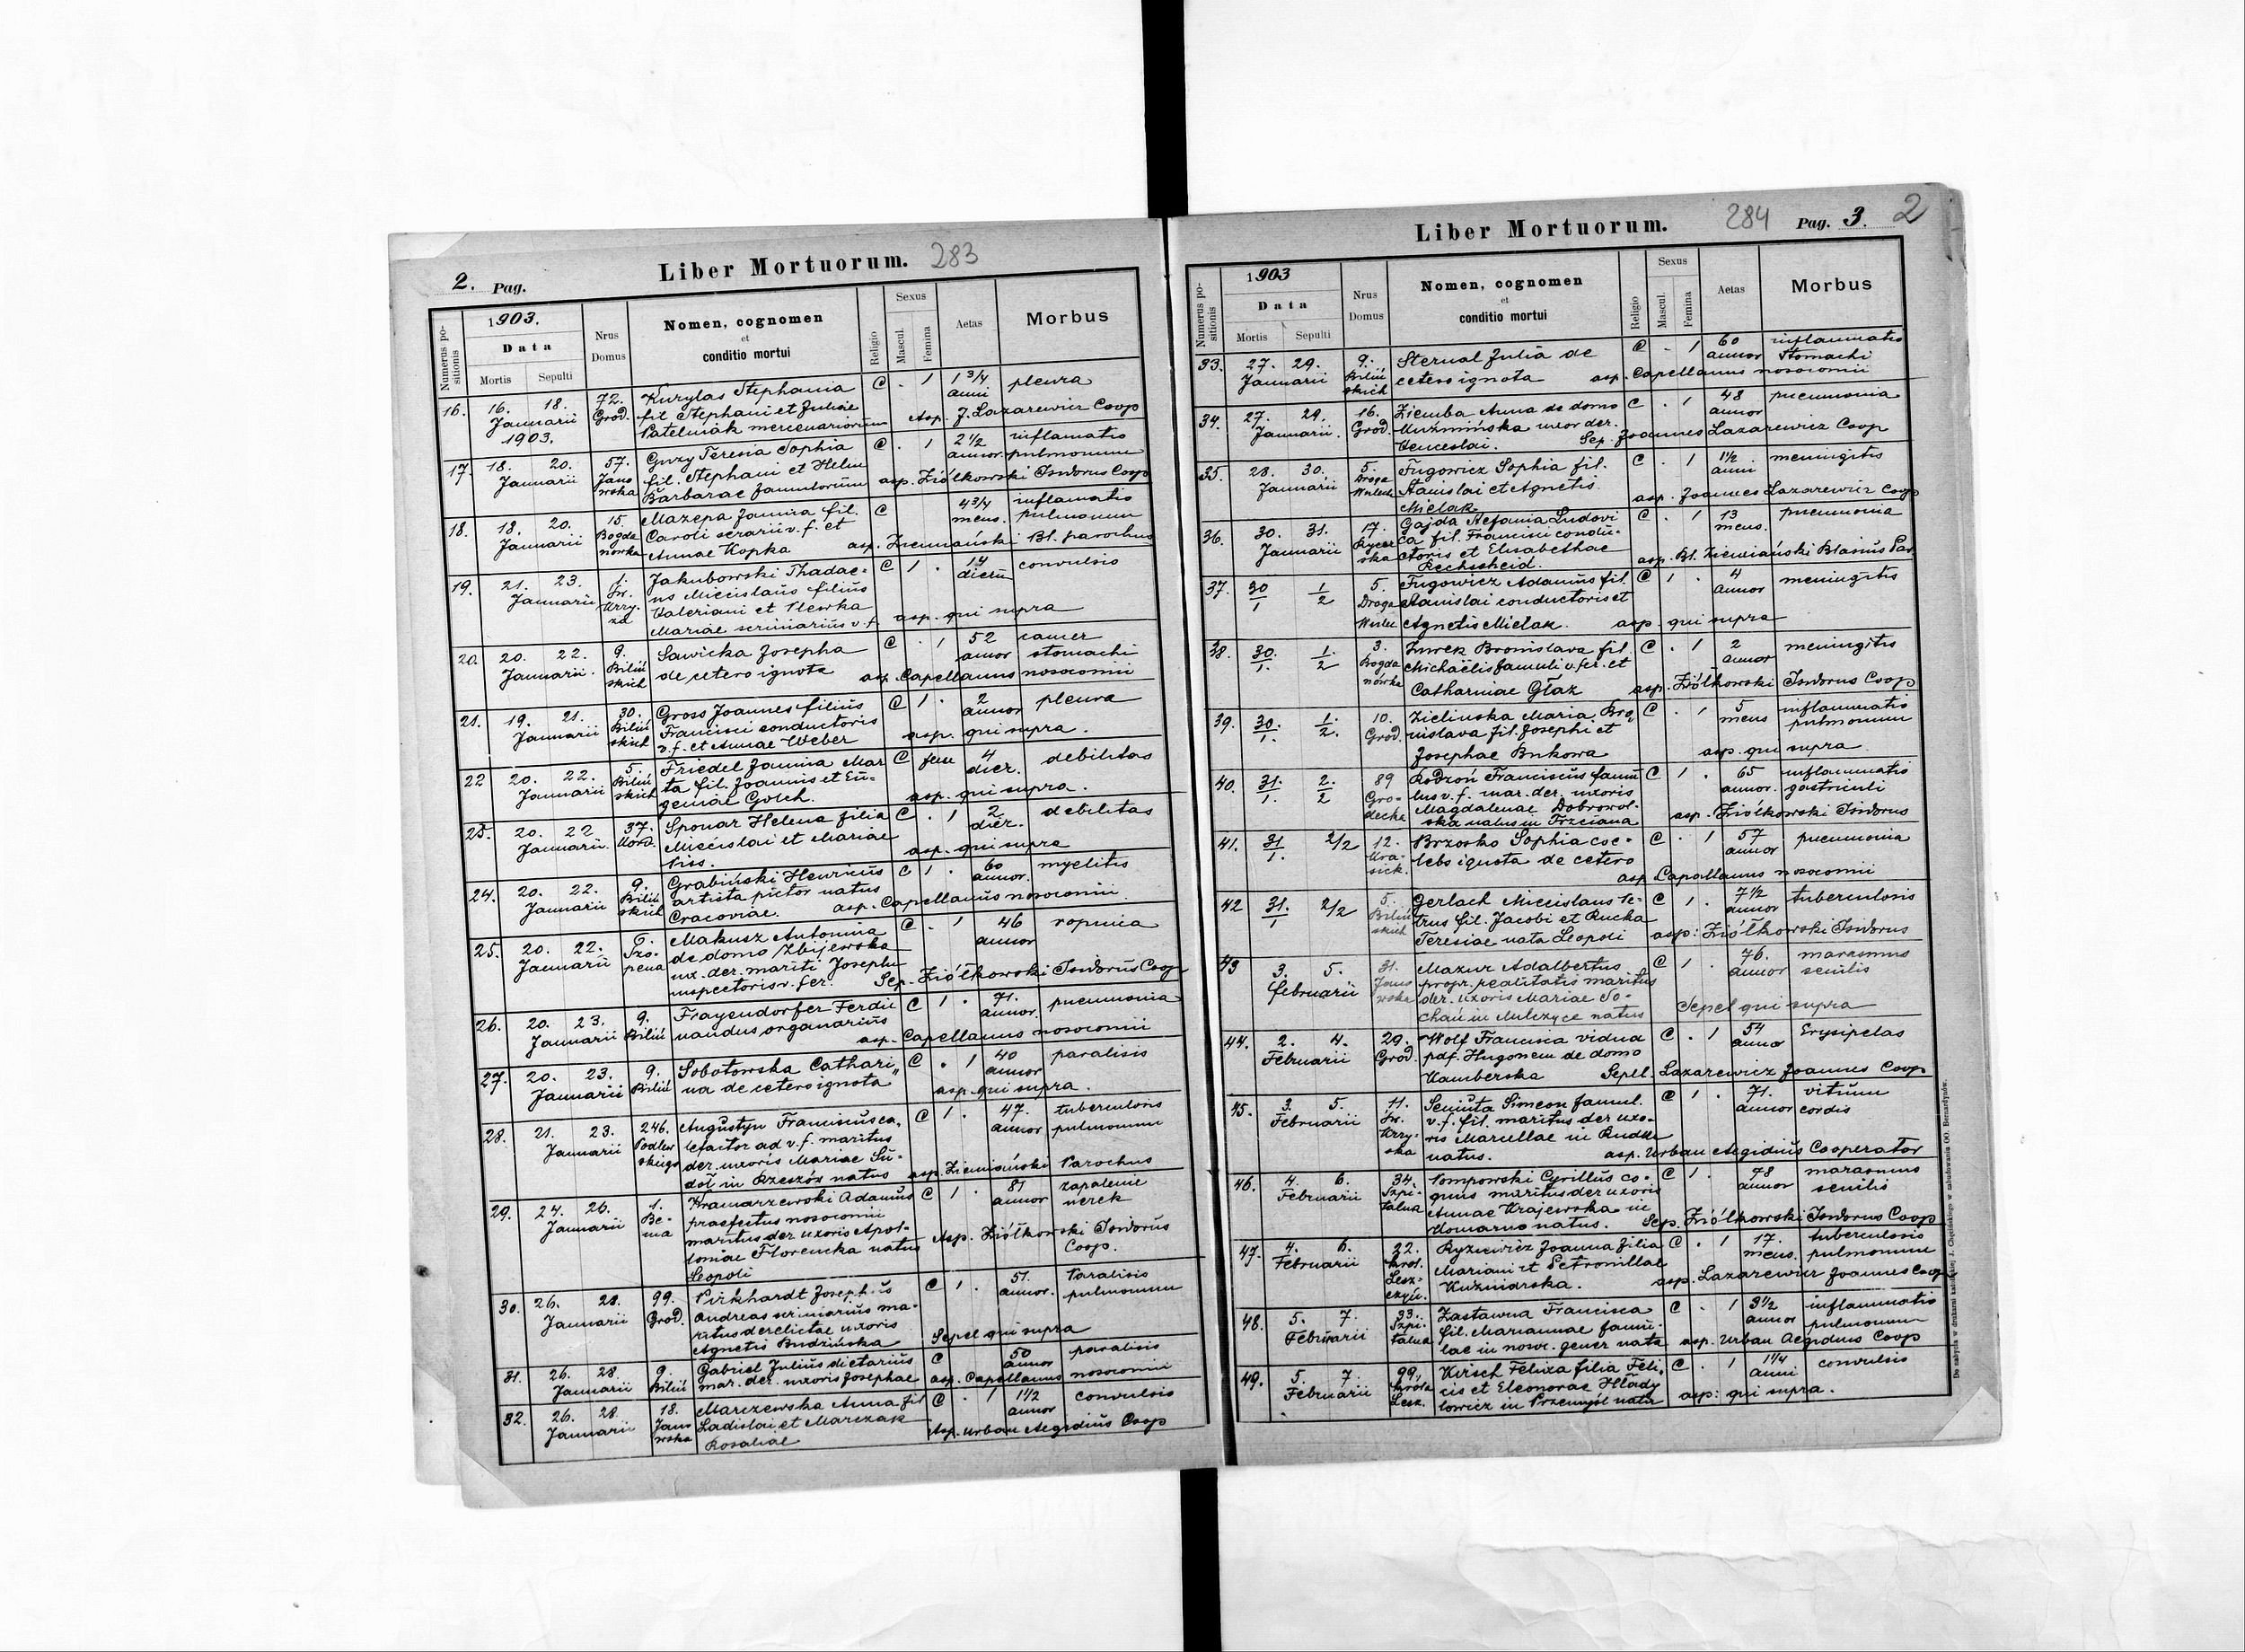 2. Pag. Liber Mortuorum. 283
Numerus positionis
1903.
Data
Mortis Sepulti
Nrus Domus
Nomen, cognomen
et
conditio mortui
Religio
Sexus
Mascul. Femina
Aetas
Morbus
16. 16. 18. 72. Kurylas Stephania C . 1 1 3/4 pleura
Januarii Grod. fil Stephani et Juliae anni
1903. Patelniak mercenariorum Asp. J. Lazarewicz Coop
17. 18. 20. 57. Guzy Teresia Sophia C . 1 2 1/2 inflamatio
Januarii Jano fil. Stephani et Helm annor. pulmonum
wska Barbarae famulorum asp. Ziółkowski Isidorus Coop
18. 18. 20. 15. Mazepa Janina fil. C 4 3/4 inflamatio
Januarii Bogda Caroli serarii v. f. et mens. pulmonum
nówka Annae Kopka asp. Ziemiański Bl. parochus
19. 21. 23. 1. Jakubowski Thadae- C 1 . 14 convulsio
Januarii Św. us Miecislaus filius dierū
Krzy- Valeriani et Plewka
ża Mariae scriniarius v. f. asp. qui supra
20. 20. 22. 9. Sawicka Josepha C . 1 52 cancer
Januarii. Biliń de cetero ignota annor stomachi
skich asp. Capellanus nosocomii
21. 19. 21. 30. Gross Joannes filius C 1 . 2 pleura
Januarii Biliń Francisci conductoris annor
skich v. f. et Annae Weber asp. qui supra.
22 20. 22. 5. Friedel Janina Mar C fem 4 debilitas
Januarii Biliń ta fil. Joannis et Eu- dier.
skich geniae Golch. asp. qui supra.
23. 20. 22 37. Sponar Helena filia C . 1 2 debilitas
Januarii. Kord. Miecislai et Mariae dier.
Piss. asp. qui supra
24. 20. 22. 9. Grabiński Henricus C 1 . 60 myelitis
Januarii Biliń artista pictor natus annor.
skich Cracoviae. asp. Capellanus nosocomii
25. 20. 22. 6. Makusz Antonina C . 1 46 ropnica
Januarii Szo- de domo Zbijewska annor
pena ux. der. mariti Josephi
inspectoris v. fer. Sep. Ziółkowski Isidorus Coop
26. 20. 23. 9. Frayendorfer Ferdi C 1 . 71. pneumonia
Januarii Biliń nandus organarius annor.
asp. Capellanus nosocomii
27. 20. 23. 9. Sobotowska Cathari„ C . 1 40 paralisis
Januarii Biliń na de cetero ignota annor
asp. qui supra.
28. 21. 23. 246. Augustyn Franciscus ca„ C 1 . 47. tuberculosis
Januarii Podlew lefactor ad v. f. maritus annor pulmonum
skiego der. uxoris Mariae Su-
doł in Rzeszów natus asp. Ziemiański Parochus
29. 24. 26. 1. Kramarzewski Adamus C 1 . 81 zapalenie
Januarii Be- praefectus nosocomii annor nerek
ma maritus der uxoris Apol-
loniae Florencka natus Asp. Ziółkowski Isidorus
Leopoli Coop.
30. 26. 28. 99. Pirkhardt Josephus C 1 . 51. Paralisis
Januarii Grod. Andreas scriniarius ma- annor. pulmonum
ritus derelictae uxoris
Agnetis Budzińska Sepel qui supra
31. 26. 28. 9. Gabriel Julius dietarius C 50 paralisis
Januarii Biliń mar. der. uxoris Josephae annor
asp. Capellanus nosocomii
32. 26. 28. 18. Marczewska Anna fil C . 1 1 1/2 convulsio
Januarii Jano Ladislai et Marczak annor
wska Rosaliae Asp. Urban Aegidius Coop
Liber Mortuorum. 284 Pag. 3. 2
Numerus positionis
1903
Data
Mortis Sepulti
Nrus Domus
Nomen, cognomen
et
conditio mortui
Religio
Sexus
Mascul. Femina
Aetas
Morbus
33. 27. 29. 9. Sternal Julia de C - 1 60 inflammatio
Januarii Biliń cetero ignota annor Stomachi
skich asp. Capellanus nosocomii
34. 27. 29. 16. Ziemba Anna de domo C . 1 48 pneumonia
Januarii. Grod. Kuźmińska uxor der. annor
Venceslai. Sep. Joannes Lazarewicz Coop
35. 28. 30. 5. Fugowicz Sophia fil. C . 1 1 1/2 meningitis
Januarii Droga Stanislai et Agnetis anni
Wulec. Mielak asp. Joannes Lazarewicz Coop
36. 30. 31. 17. Gajda Stefania Ludovi C . 1 13 pneumonia
Januarii Rycer ca fil. Francisci condu- mens.
ska ctoris et Elisabethae
Rechssheid. asp. Bl. Ziemiański Blasius Par
37. 30/1 1/2 5. Fugowicz Adamus fil. C 1 . 4 meningitis
Droga Stanislai conductoris et annor
Wulec Agnetis Mielak. asp. qui supra
38. 30/1. 1/2 3. Żurek Bronislava fil. C . 1 2 meningitis
Bogda Michaëlis famuli v. fer. et annor
nówka Catharinae Głaz asp. Ziółkowski Isidorus Coop
39. 30/1. 1/2. 10. Zielinska Maria Bro C . 1 5 inflammatio
Grod. nislava fil. Josephi et mens pulmonum
Josephae Bukowa asp. qui supra
40. 31/1. 2./2 89 Kodzoń Franciscus famu C 1 . 65 inflammatio
Gro- lus v. f. mar. der. uxoris annor. gastriculi
decka Magdalenae Dobrowol-
ska natus in Trzciana asp. Ziółkowski Isidorus
41. 31/1. 2/2 12. Brzosko Sophia coe- C . 1 57 pneumonia
Kra- lebs ignota de cetero annor
sick. asp Capellanus nosocomii
42 31./1 2/2 5. Gerlach Miecislaus Pe- C 1 . 7 1/2 tuberculosis
Biliń trus fil. Jacobi et Rucka annor
skich Teresiae nata Leopoli asp: Ziółkowski Isidorus
43 3. 5. 31. Mazur Adalbertus C 1 . 76. marasmus
Februarii Jano propr. realitatis maritus annor senilis
wska der. uxoris Mariae So-
chań in Mulczyce natus Sepel qui supra
44. 2. 4. 29. Wolf Francisca vidua C . 1 54 Erysipelas
Februarii Grod. pdf. Hugonem de domo anno
Kamberska Sepel. Lazarewicz Joannes Coop
45. 3. 5. 11. Seniuta Simeon famul. C 1 . 71. vitium
Februarii Św. v. f. fil. maritus der uxo- annor cordis
Krzy- ris Marcellae in Rudki
ska natus. asp. Urban Aegidius Cooperator
46. 4. 6. 34. Pompowski Cyrillus co- C 1 . 78 marasmus
Februarii Szpi- quus maritus der uxoris annor senilis
talna Annae Krajewska in
Komarno natus. Sep. Ziółkowski Isidorus Coop
47. 4. 6. 22. Ryziewicz Joanna filia C . 1 17. tuberculosis
Februarii Król. Mariani et Petronillae mens. pulmonum
Lesz- Kuźniarska. asp. Lazarewicz Joannes Coop
czyń.
48. 5. 7. 33. Zastawna Francisca C . 1 3 1/2 inflammatio
Februarii Szpi- fil. Mariannae famu- annor pulmonum
talna lae in nosoc. gener nata asp. Urban Aegidius Coop
49. 5. 7. 99, Kirsch Felixa filia Feli- C . 1 1 1/4 convulsio
Februarii Króla cis et Eleonorae Hlady anni
Lesz. lowicz in Przemyśl nata asp: qui supra.
Do nabycia w drukarni katolickiej J. Chęcińskiego w zabudowaniu OO. Bernardynów.